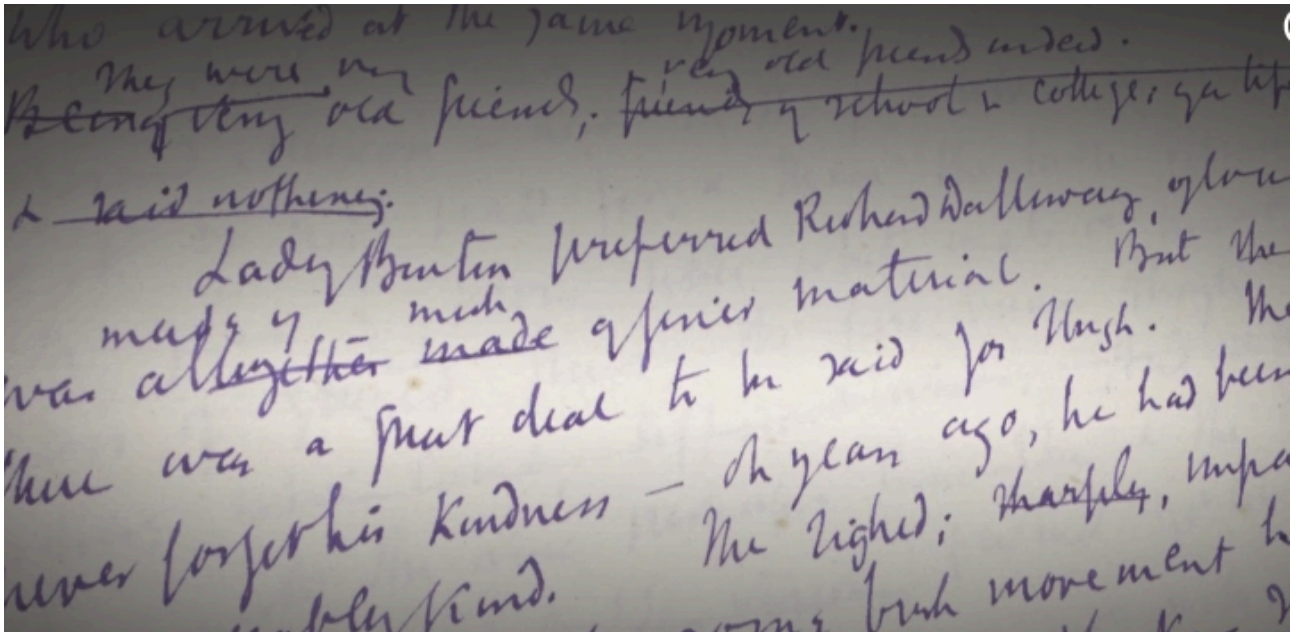 who arrived at the same moment.
They were very very old friends indeed.
Being very old friends, friends of school & college, of a
& said nothing.
Lady Bruton preferred Richard Dalloway, of
made of much
was altogether made of finer material. But
there was a great deal to be said for Hugh.
never forget his kindness — oh years ago, he had been
kind. She sighed; sharply,
movement